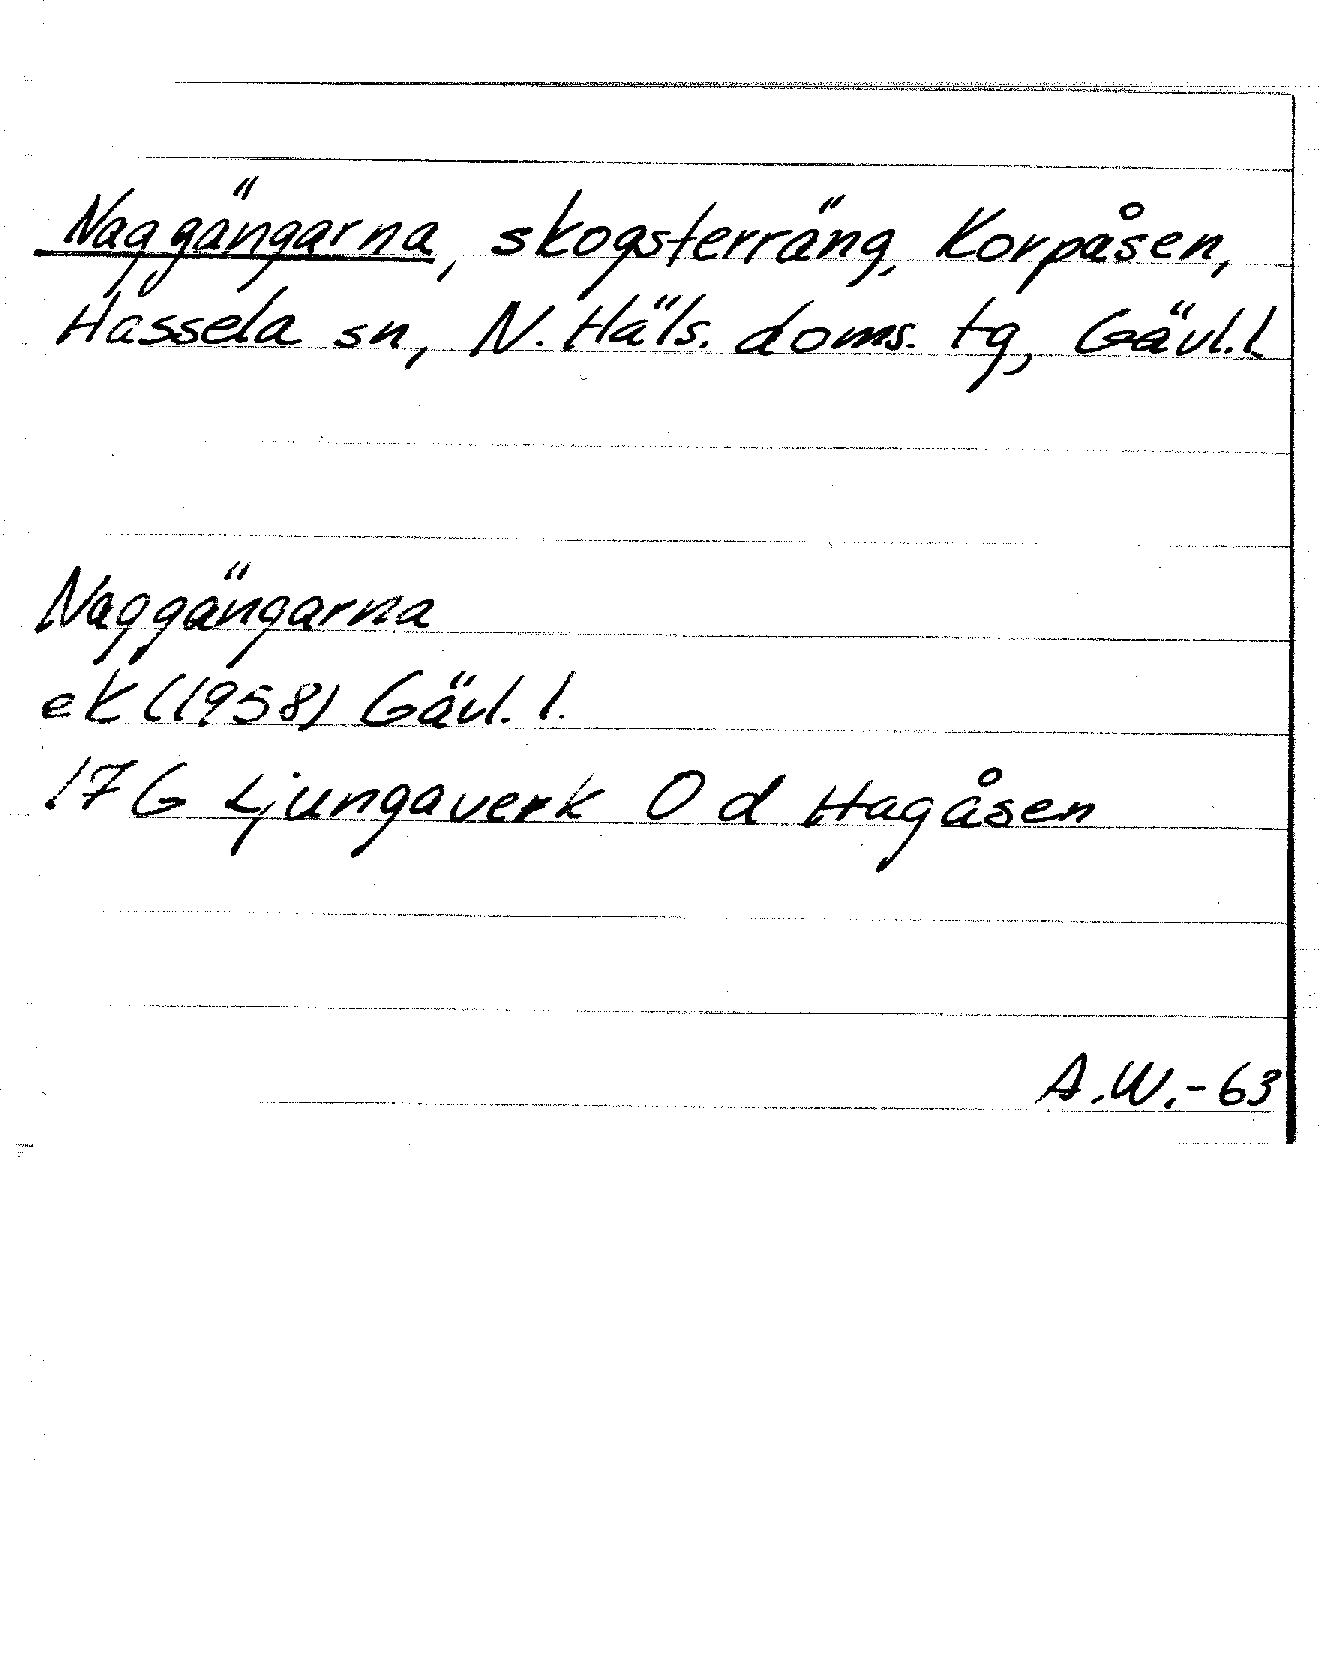 Naggängarna, skogsterräng, Korpåsen,
Hassela sn, N. Häls. doms. tg, Gävl.l
Naggängarna
ek (1958) Gävl. l.
17 G Ljungaverk 0 d Hagåsen
A.W.-63